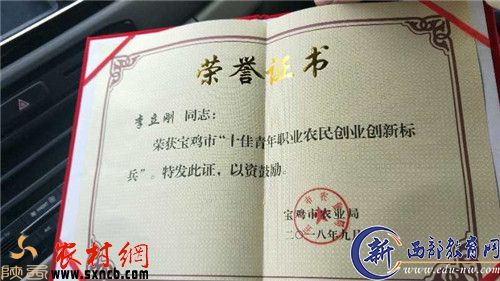 荣誉证书
李立刚 同志：
荣获宝鸡市“十佳青年职业农民创业创新标
兵”。特发此证，以资鼓励。
宝鸡市农业局
二〇一八年九月
陕西农村網
www.sxncb.com
新西部教育网
www.edu-nw.com